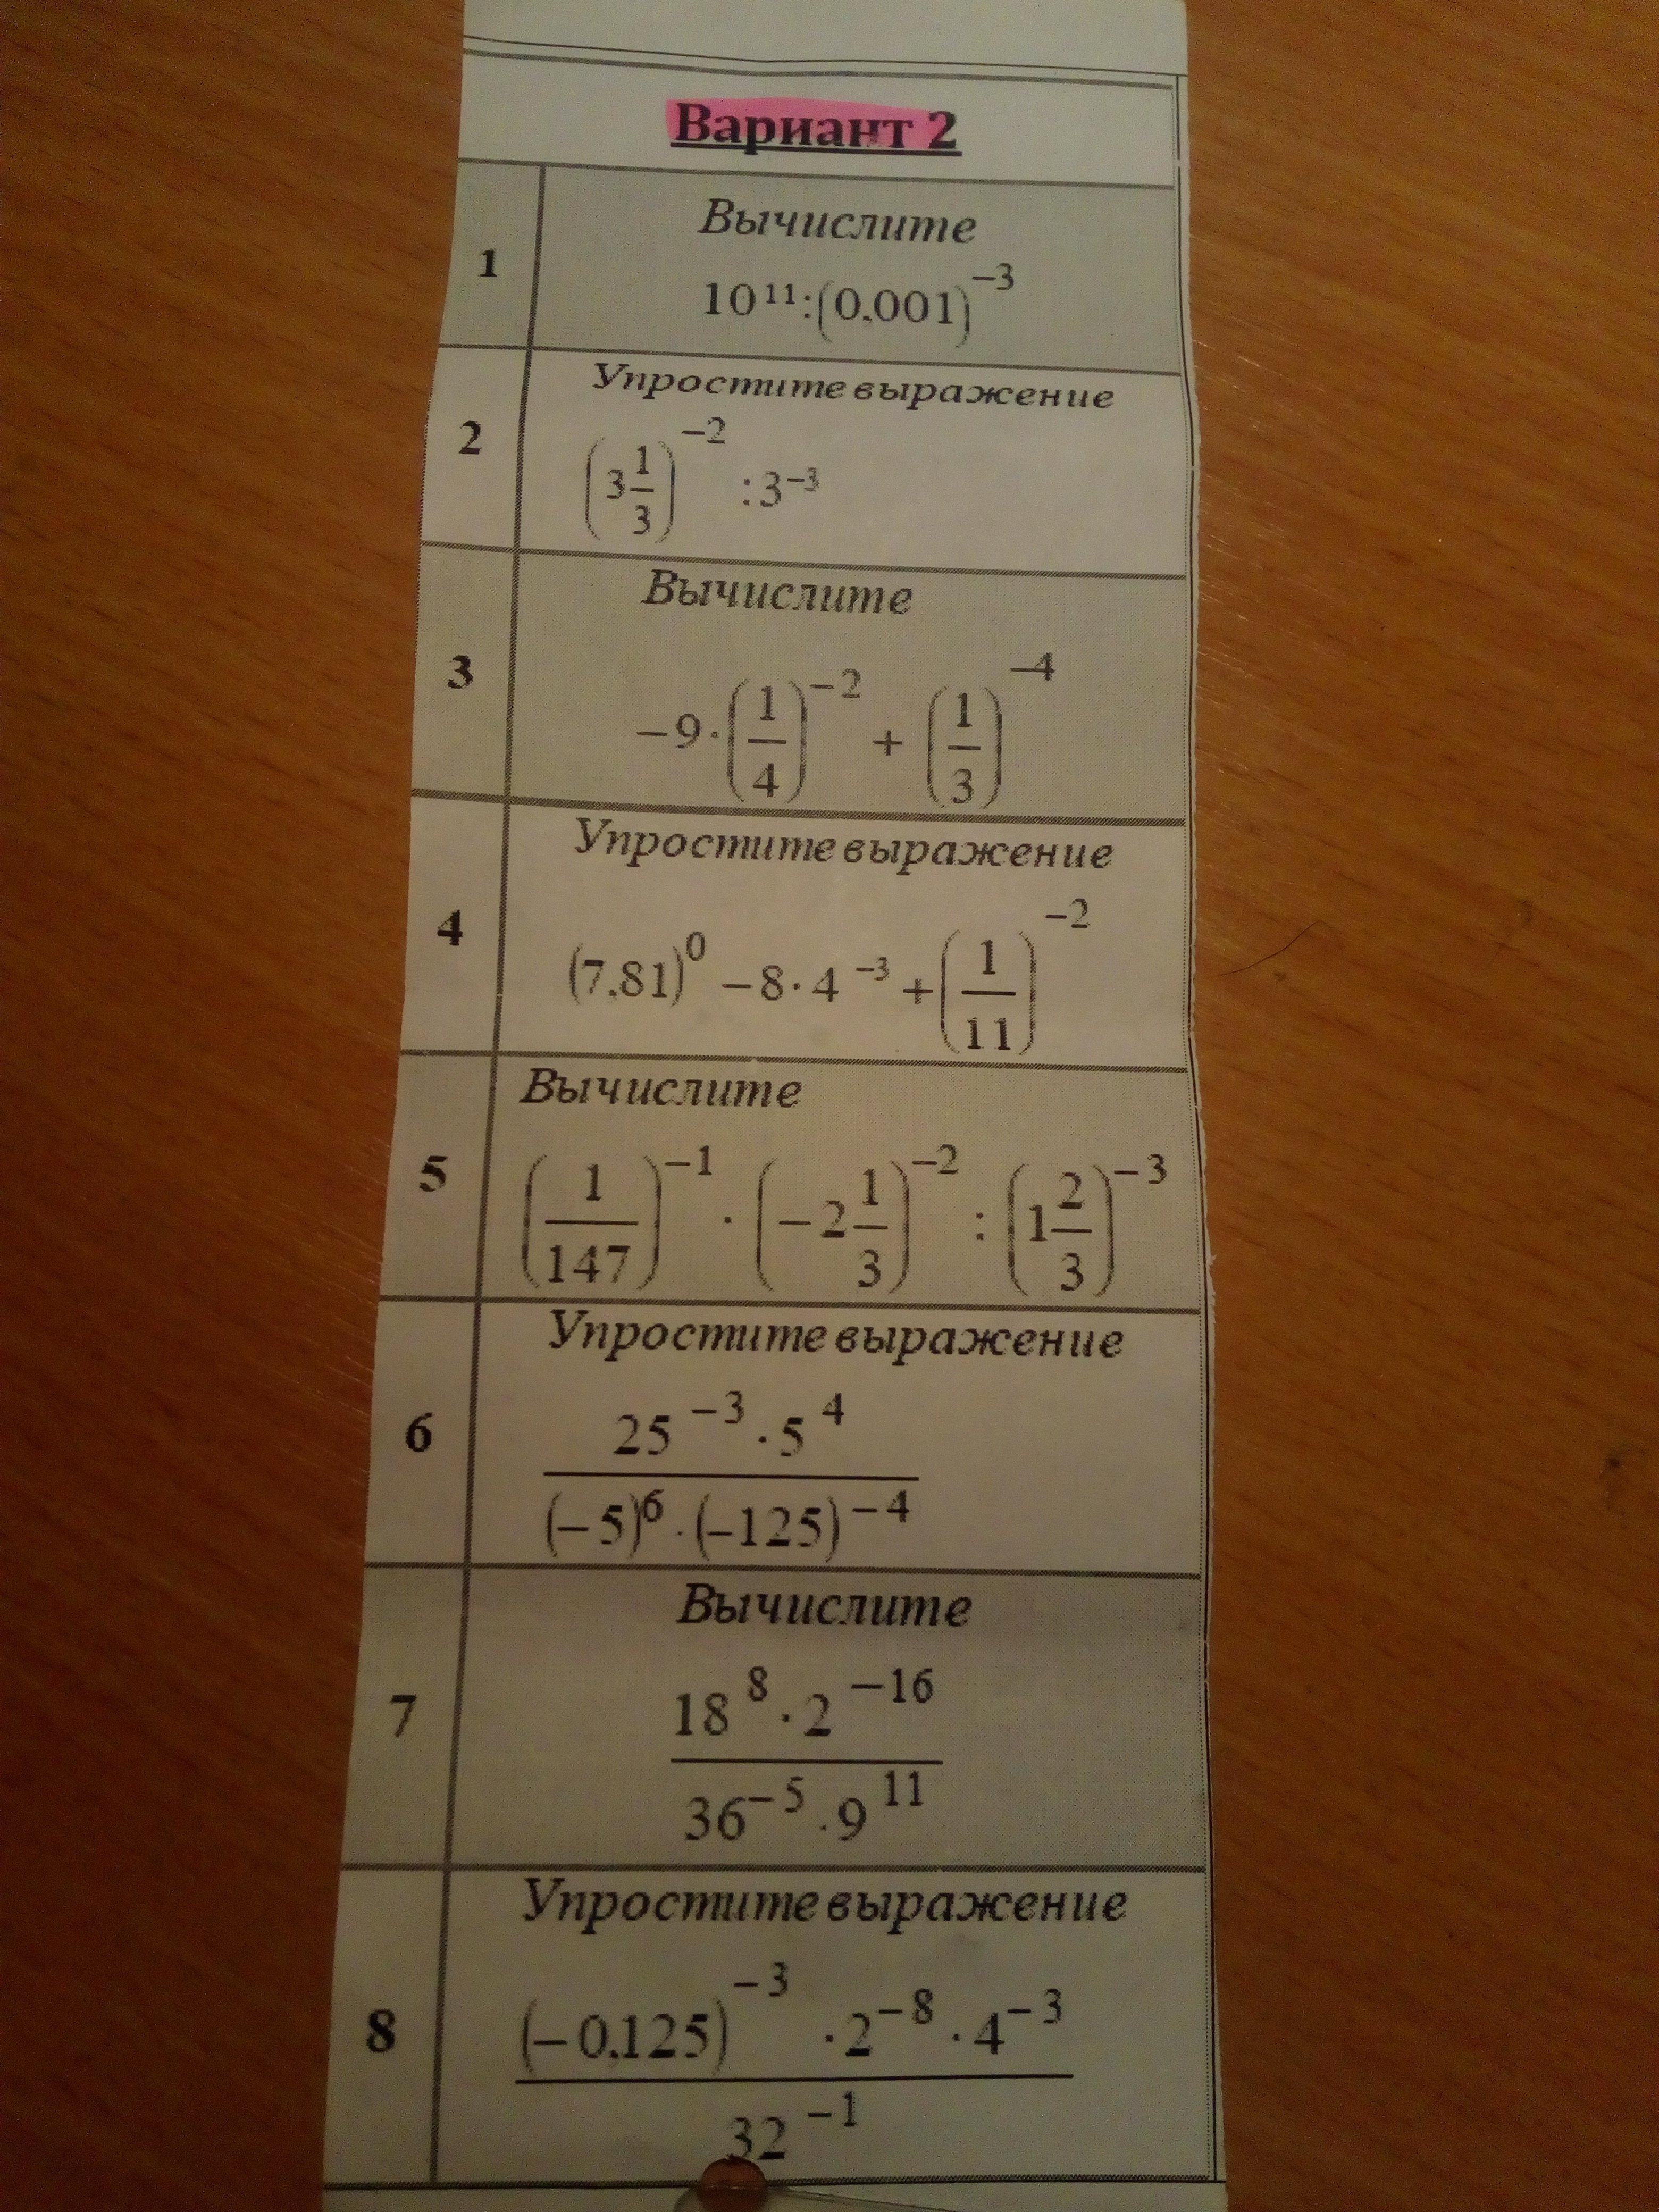 Вариант 2
1
Вычислите
10¹¹:(0,001)⁻³
2
Упростите выражение
(3 1/3)⁻² :3⁻³
3
Вычислите
−9·(1/4)⁻² + (1/3)⁻⁴
4
Упростите выражение
(7,81)⁰ −8·4⁻³ +(1/11)⁻²
5
Вычислите
(1/147)⁻¹ · (−2 1/3)⁻² : (1 2/3)⁻³
6
Упростите выражение
25⁻³·5⁴
(−5)⁶·(−125)⁻⁴
7
Вычислите
18⁸·2⁻¹⁶
36⁻⁵·9¹¹
8
Упростите выражение
(−0,125)⁻³ ·2⁻⁸·4⁻³
32⁻¹